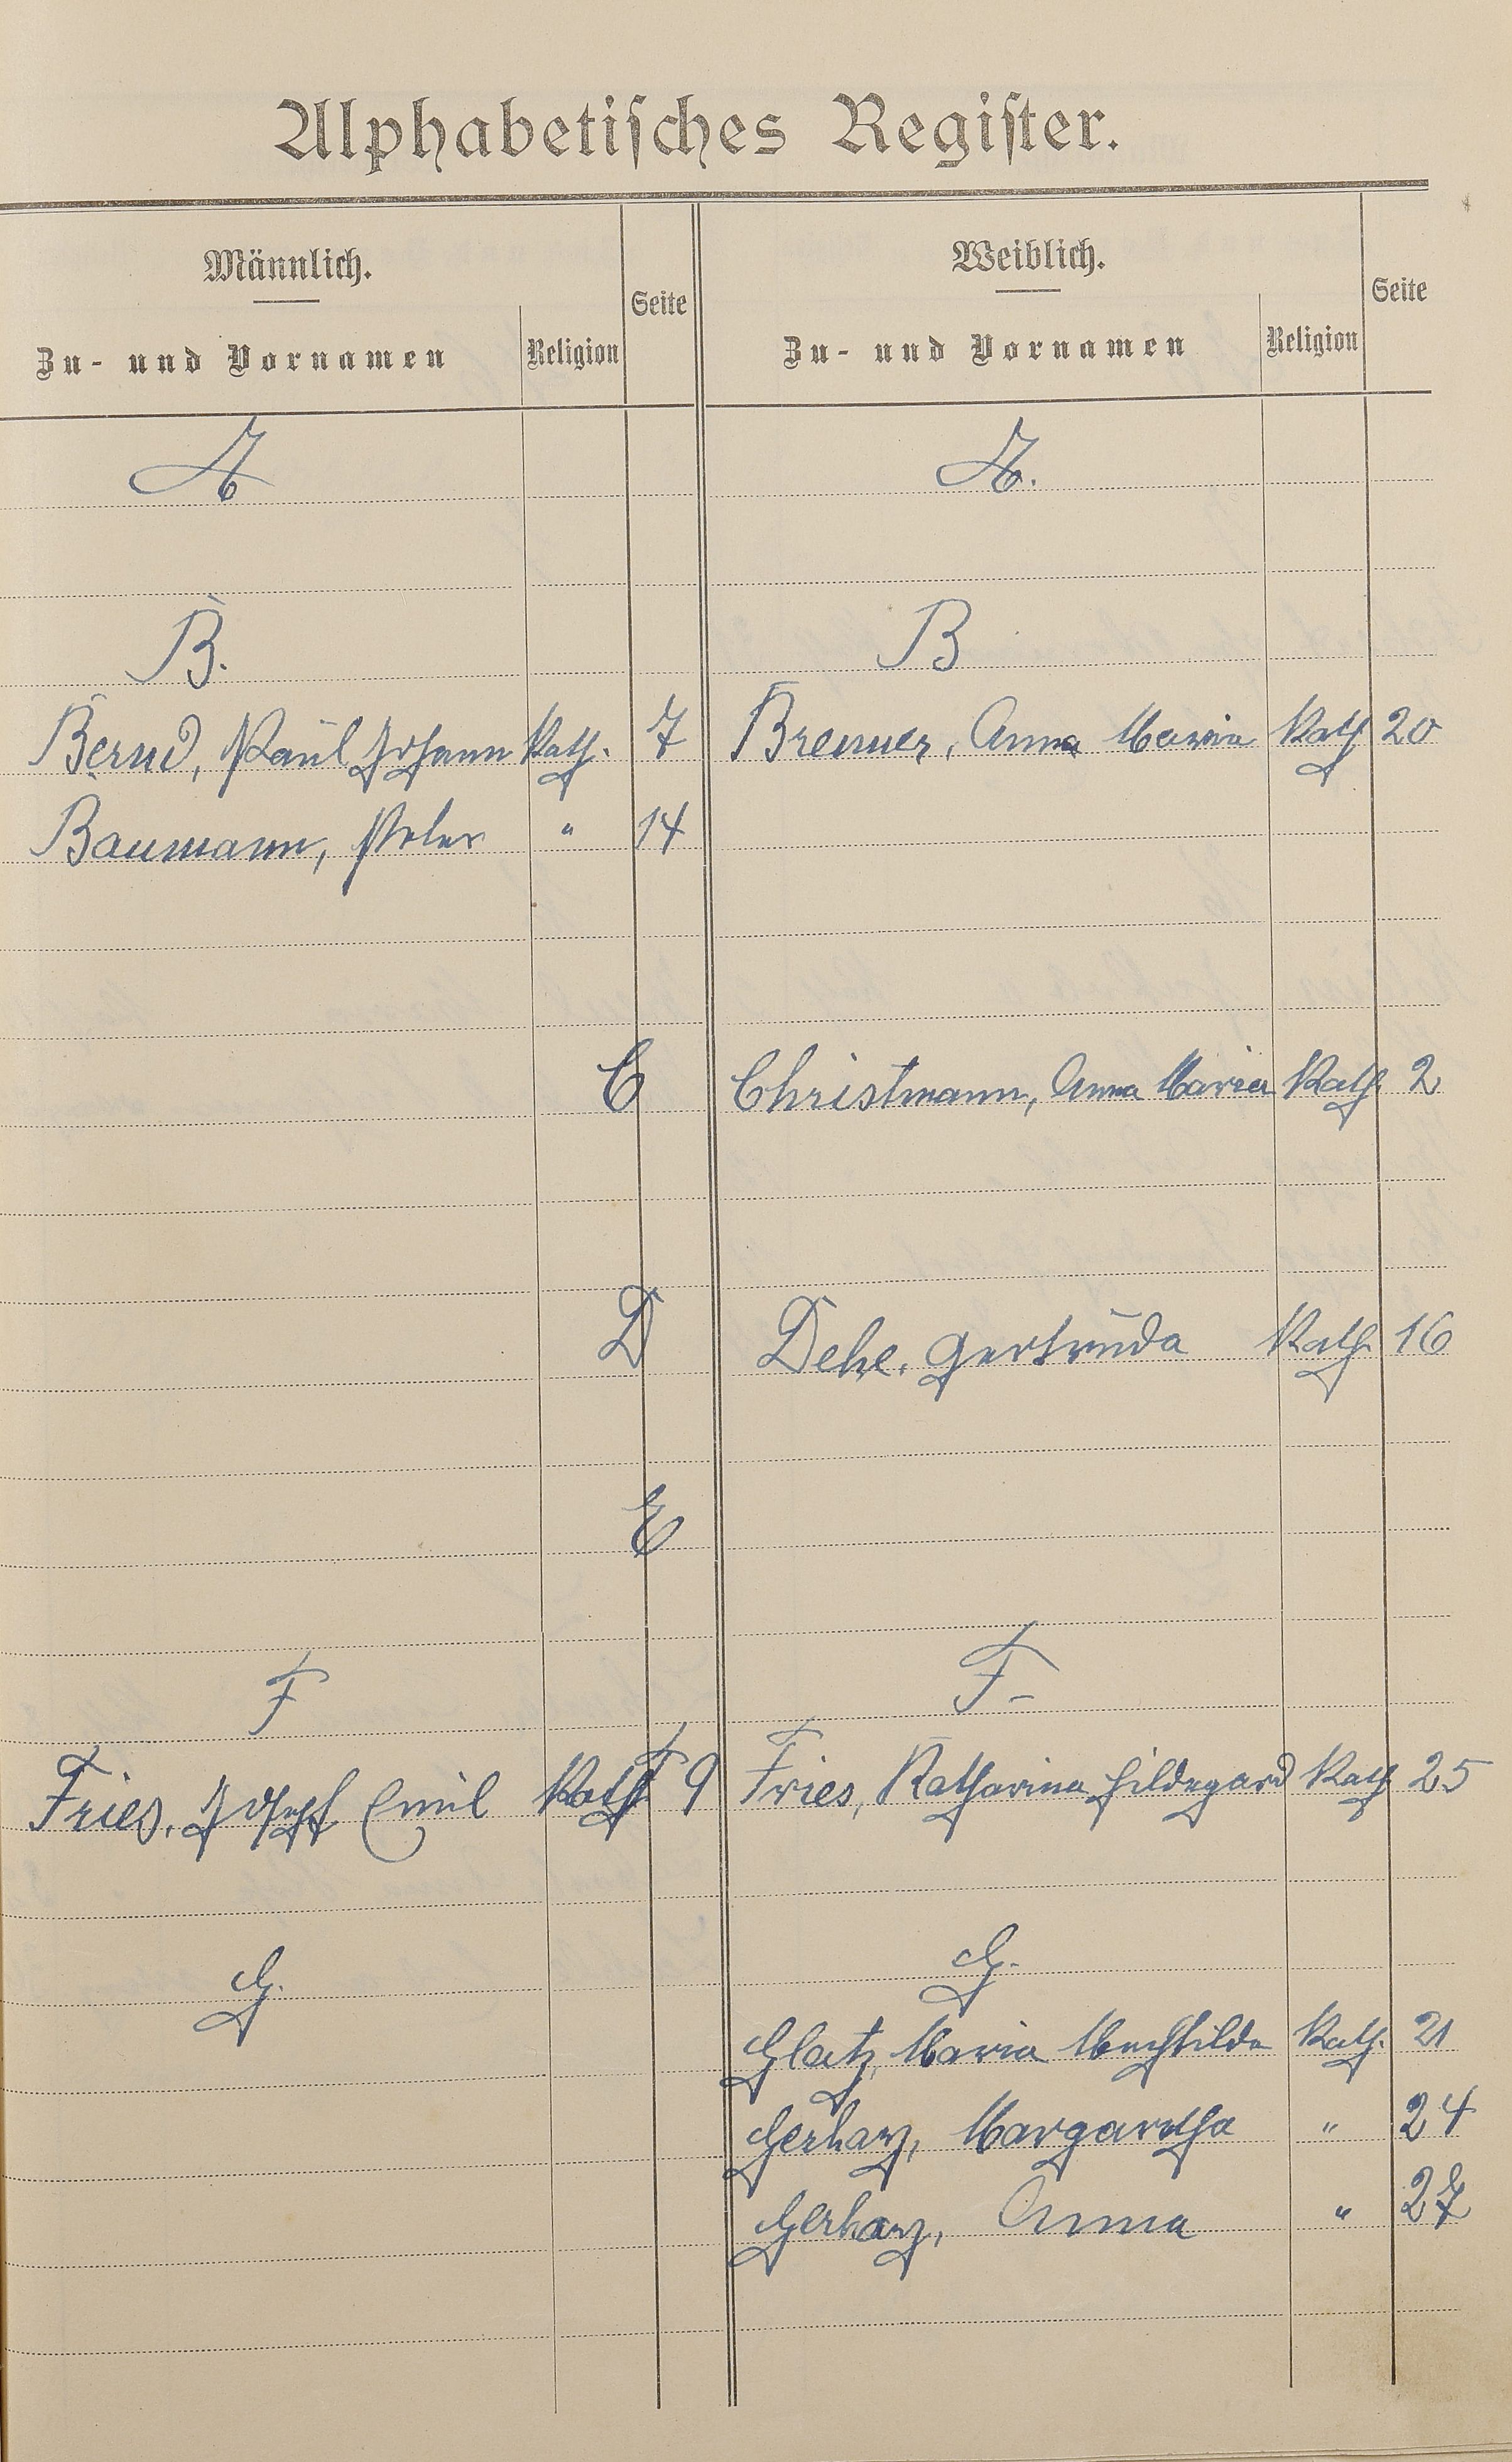 Alphabetisches Register.
Männlich. Weiblich.
Zu- und Vornamen Religion Seite Zu- und Vornamen Religion Seite
A A.
B. B
Bernd, Paul Johann Kath. 7 Bremmer, Anna Maria Kath 20
Baumann, Peter " 14
C Christmann, Anna Maria Kath. 2
D Dehe, Gertruda Kath. 16
E
F F-
Fries, Joseph Emil Kath. 9 Fries, Katharina Hildegard Kath 25
G. G.
Glatz, Maria Mechtilde Kath. 21
Gerharz, Margaretha " 24
Gerharz, Anna " 27